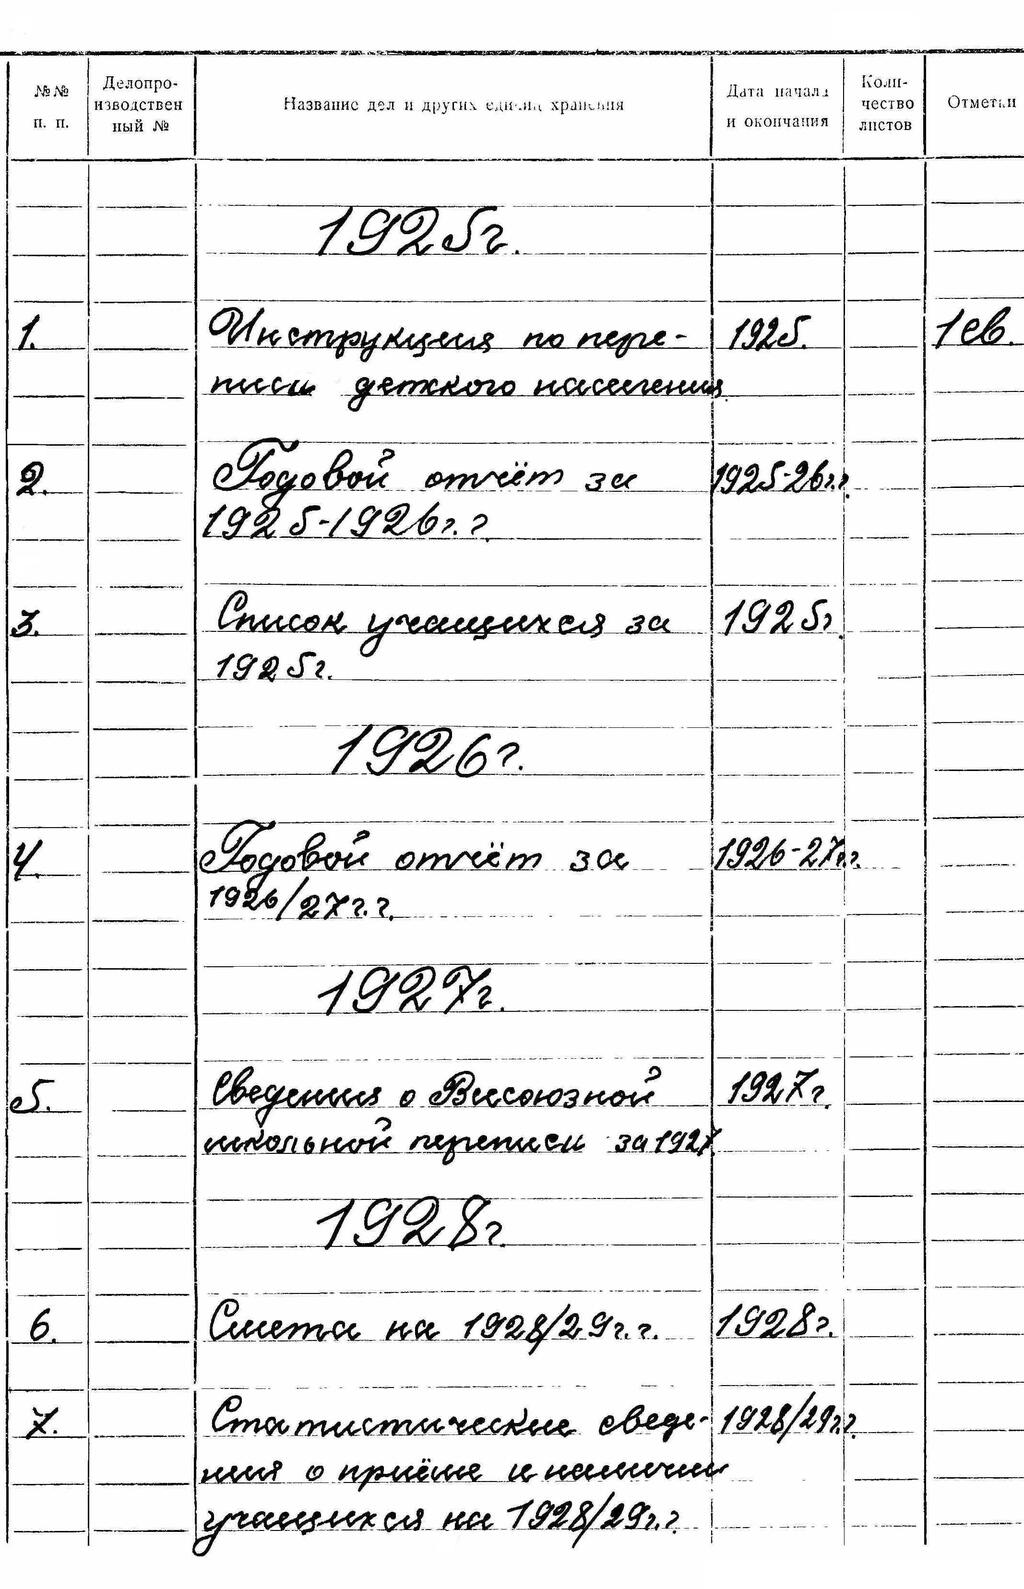 №№ п. п. Делопроизводствен ный № Название дел и других единиц хранения Дата начала и окончания Коли- чество листов Отметки
1925г.
1. Инструкция по пере- 1925. 1св.
писи детского населения
2. Годовой отчёт за 1925-26г.г.
1925-1926г.г.
3. Список учащихся за 1925г.
1925г.
1926г.
4. Годовой отчёт за 1926-27г.г.
1926/27г.г.
1927г.
5. Сведения о Всесоюзной 1927г.
школьной переписи за 1927
1928г.
6. Смета на 1928/29г.г. 1928г.
7. Статистические сведе- 1928/29г.г.
ния о приёме и наличии
учащихся на 1928/29г.г.